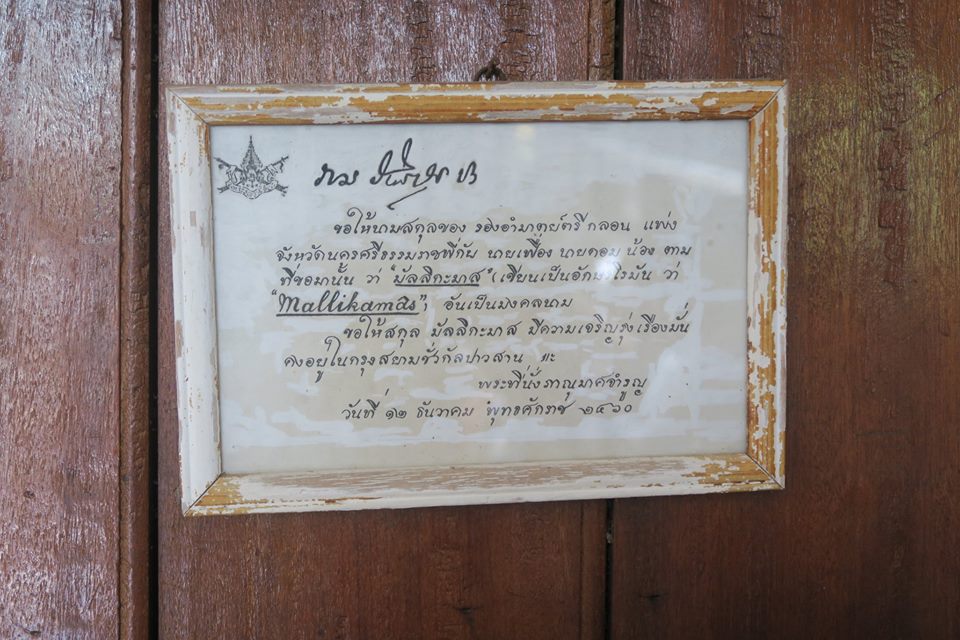 ราม วชิราวุธ ปร
ขอให้นามสกุลของ รองอำมาตย์ตรี กลอน แพ่ง
จังหวัดนครศรีธรรมราชพี่กับ นายเฟื่อง นายคอม น้อง ตาม
ที่ขอมานั้น ว่า "มัลลิกะมาส" (เขียนเป็นอักษรโรมัน ว่า
"Mallikamās") อันเป็นมงคลนาม
ขอให้สกุล มัลลิกะมาส มีความเจริญรุ่งเรืองมั่น
คงอยู่ในกรุงสยามชั่วกัลปาวสาน ๚ะ
พระที่นั่งภาณุมาศจำรูญ
วันที่ ๑๒ ธันวาคม พุทธศักราช ๒๔๖๐